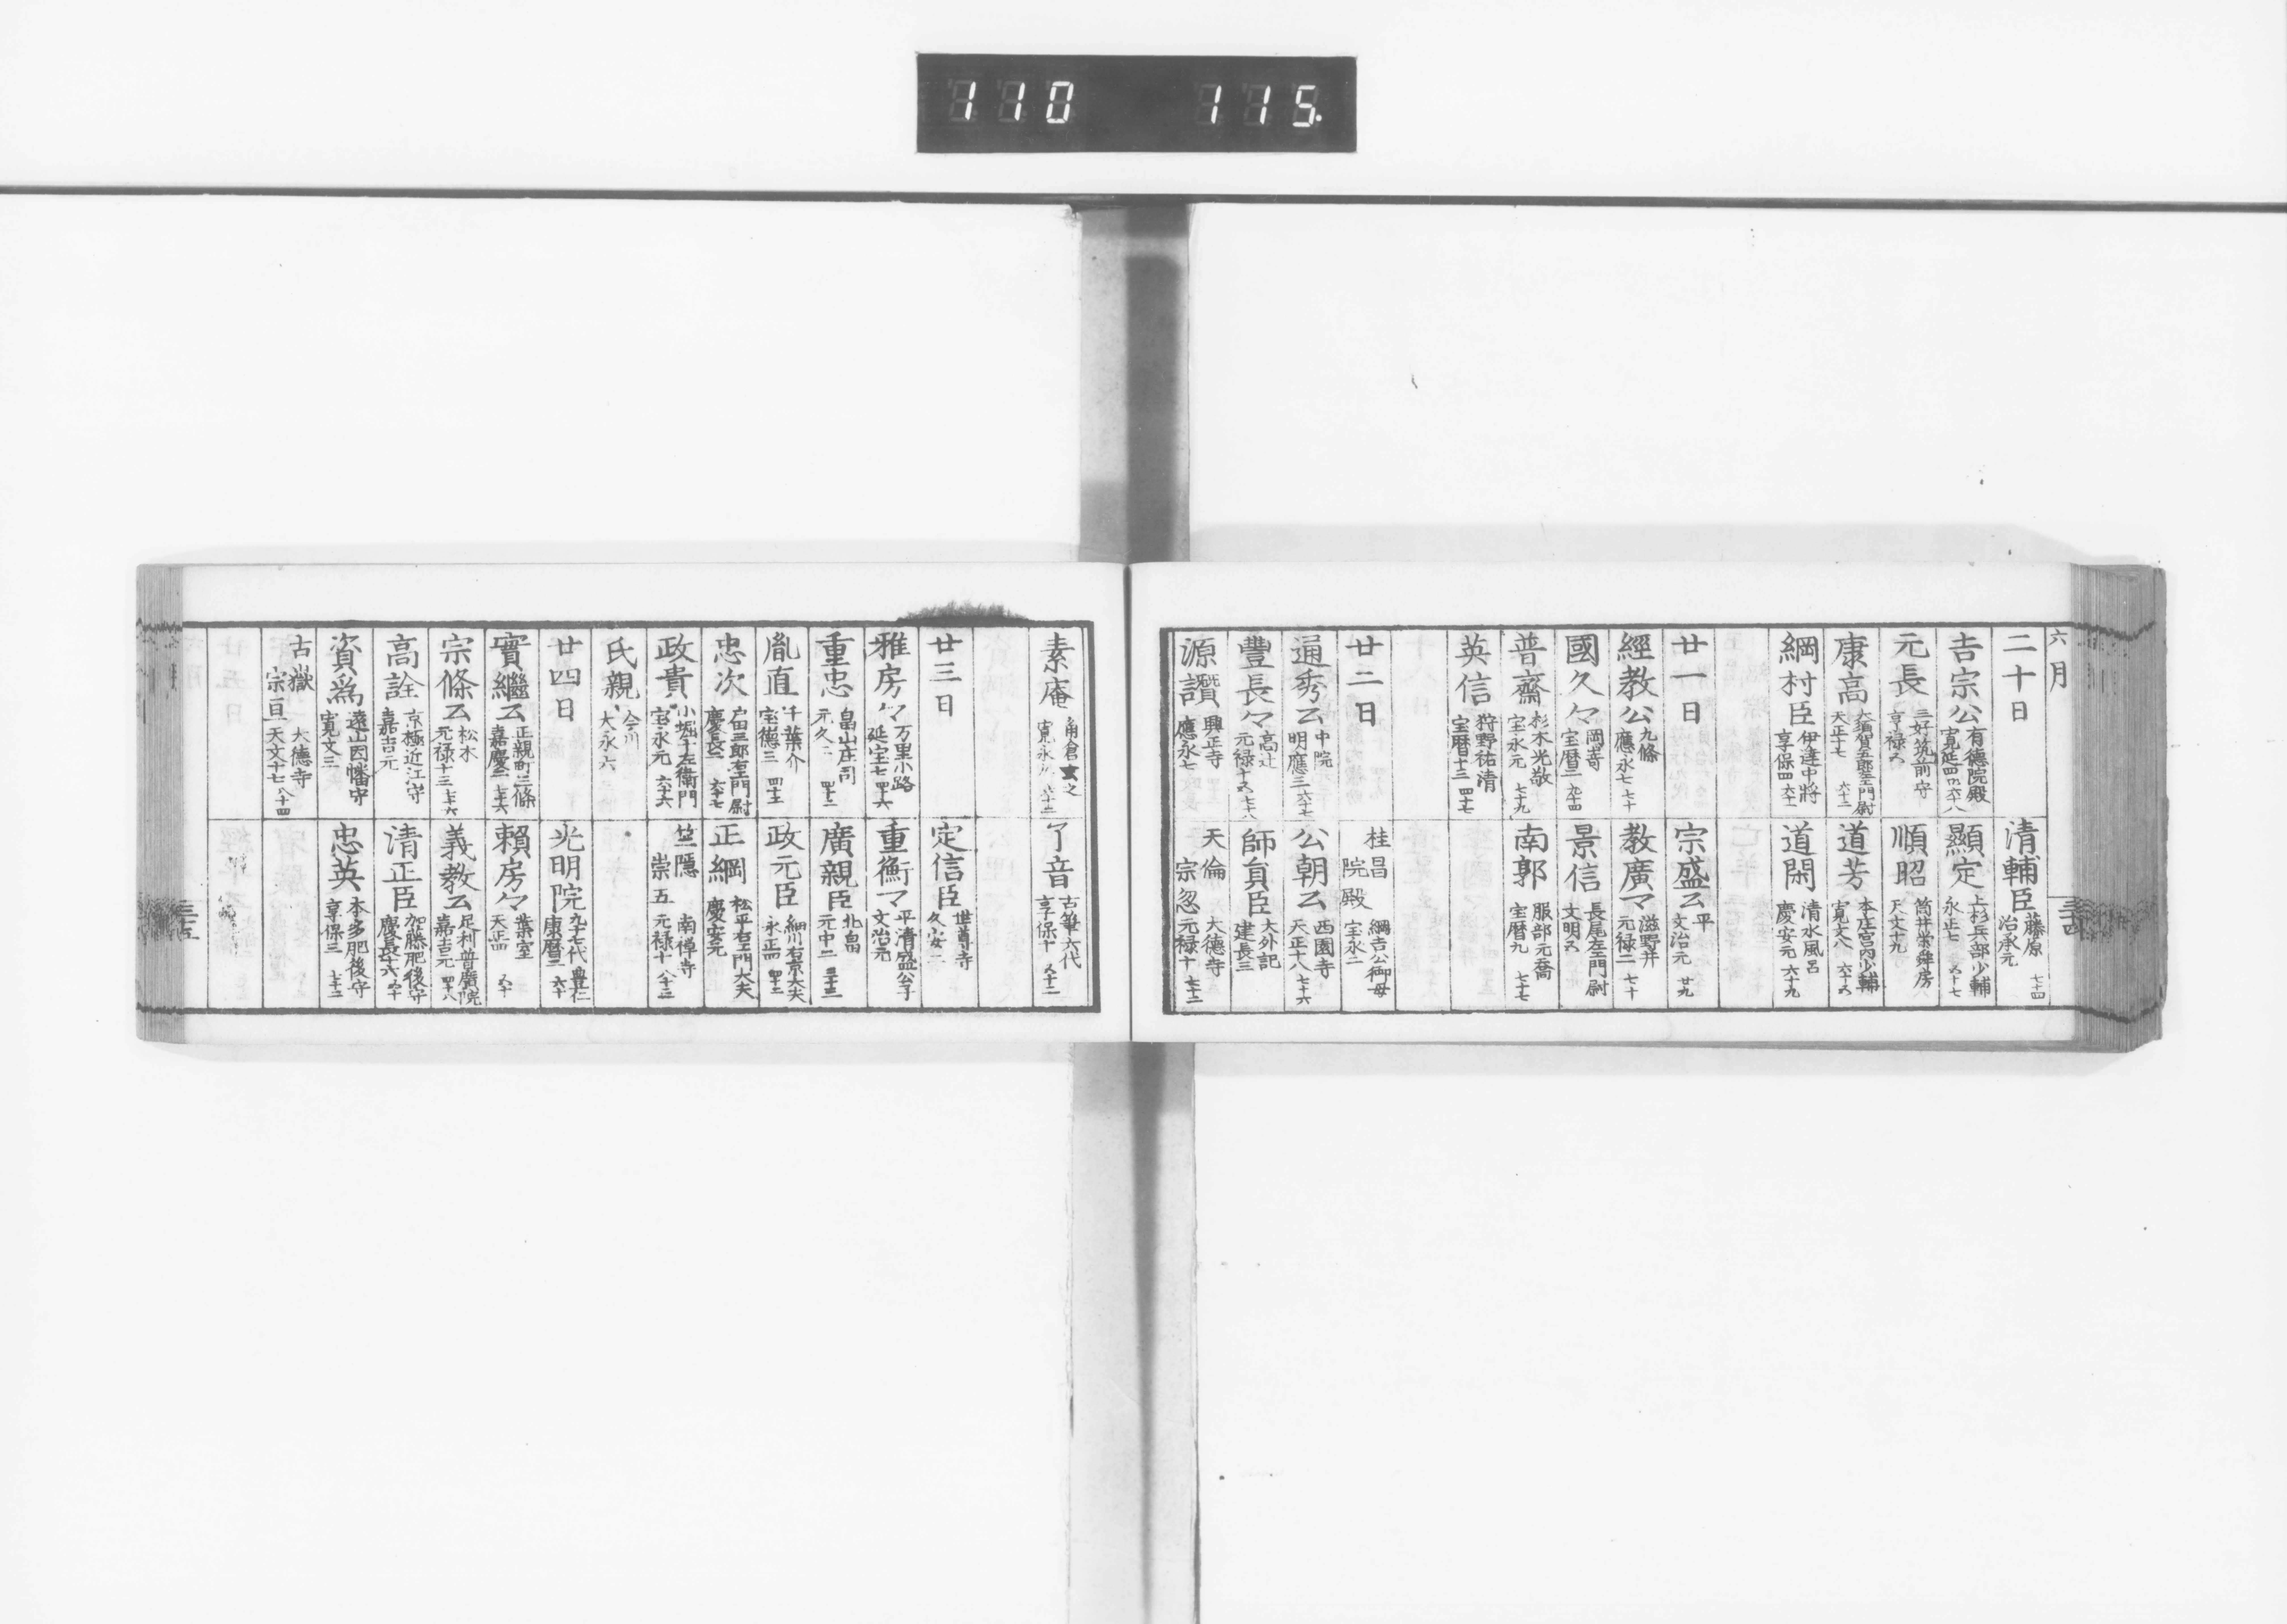 110 115.
六月
三十四
二十日
清輔臣 藤原 治承元 七十四
吉宗公 有徳院殿 寛延四 六十八
顯定 上杉兵部少輔 永正七 五十七
元長 三好筑前守 享禄五
順昭 筒井栄舜房 天文十九
康高 大須賀五郎左門尉 天正十七 六十二
道芳 本庄宮内少輔 寛文八 六十五
綱村臣 伊達中將 享保四 六十一
道閑 清水風呂 慶安元 六十九
廿一日
宗盛公 平 文治元 廿九
經教公 九條 應永七 七十
教廣々 滋野井 元禄二 七十
國久々 岡嵜 宝暦二 九十四
景信 長尾左門尉 文明五
普齋 杉木光敬 宝永元 七十九
南郭 服部元喬 宝暦九 七十七
英信 狩野祐清 宝暦十三 四十七
廿二日
桂昌院殿 綱吉公御母 宝永二
通秀公 中院 明應三 六十七
公朝公 西園寺 天正十八 七十六
豐長々 高辻 元禄十五 七十八
師貟臣 大外記 建長三
源讃 興正寺 應永七
天倫宗忽 大德寺 元禄十 七十二
素庵 角倉玄之 寛永
了音 古筆六代 享保十 五十二
廿三日
定信臣 世尊寺 久安二
雅房々 万里小路 延宝七 四十六
重衡々 平清盛公子 文治元
重忠 畠山庄司 元久二 四十二
廣親臣 北畠 元中二 三十三
胤直 千葉介 宝德三 四十三
政元臣 細川右京大夫 永正四 四十二
忠次 戸田三郎左門尉 慶長二 六十七
正綱 松平右門大夫 慶安元
政貴 小堀十左衛門 宝永元 六十六
竺隱崇五 南禅寺 元禄十 八十三
氏親 今川 大永六
廿四日
光明院 九十七代 豊仁 康暦二 六十
實繼公 正親町三條 嘉慶二 七十六
賴房々 葉室 天正四 五十
宗條公 松木 元禄十三 七十六
義教公 足利普廣院 嘉吉元 四十八
高詮 京極近江守 嘉吉元
清正臣 加藤肥後守 慶長十六 五十
資爲 遠山因幡守 寛文三
忠英 本多肥後守 享保三 七十二
古嶽宗亘 大德寺 天文十七 八十四
三十五